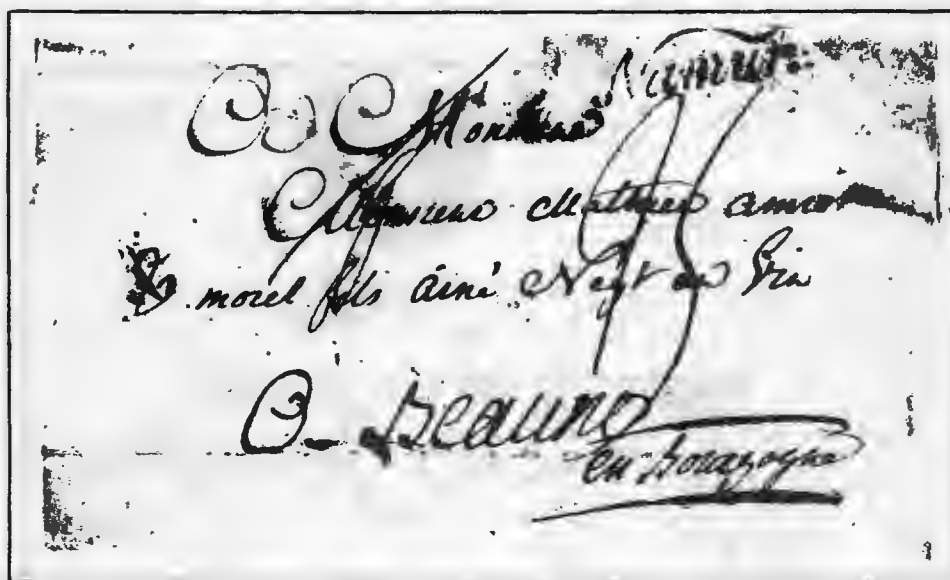 Namur
A Monsieur
Monsieur Mathieu amor
& morel fils ainé Negt en Vin
A Beaune
en Bourgogne